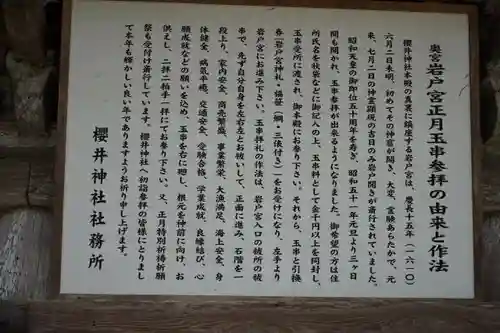 奥宮岩戸宮正月玉串参拝の由来と作法
櫻井神社本殿の真裏に鎮座する岩戸宮は、慶長十五年(一六一〇)
六月二日未明、初めてその神窟が開き、大変、霊験あらたかで、元
来、七月二日の神霊顕現の吉日のみ岩戸開きが斎行されていました。
昭和天皇の御即位五十周年を寿ぎ、昭和五十一年元旦より三ヶ日
間も開かれ、玉串参拝が出来るようになりました。御希望の方は住
所氏名を祓袋などに御記入の上、玉串料として金千円以上を同封し、
玉串受所に渡され、御本殿にお参り下さい。それから、玉串と引換
券「岩戸宮神札・福笹(鯛・三俵付き)」をお受けになり、左手より
岩戸宮にお進み下さい。玉串拝礼の作法は、岩戸宮入口の祓所の祓
串で、先ず自分自身を左右左とお祓いして、正面に進み、石階を一
段上り、家内安全、商売繁盛、事業繁栄、大漁満足、海上安全、身
体健全、病気平癒、交通安全、受験合格、学業成就、良縁結び、心
願成就などの願いを込め、玉串を右に廻し、根元を神前に向け、お
供えし、二拝二拍手一拝にてお参り下さい。又、正月特別祈祷祈願
祭も受付け斎行しています。櫻井神社へ初詣参拝の皆様にとりまし
て本年も輝かしい良い年でありますようお祈り申し上げます。
櫻井神社社務所